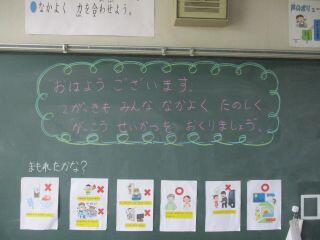 なかよく 力を合わせよう。
声のボリュー
おはよう ございます。
2がっきも みんな なかよく たのしく
がっこう せいかつを おくりましょう。
まもれたかな?